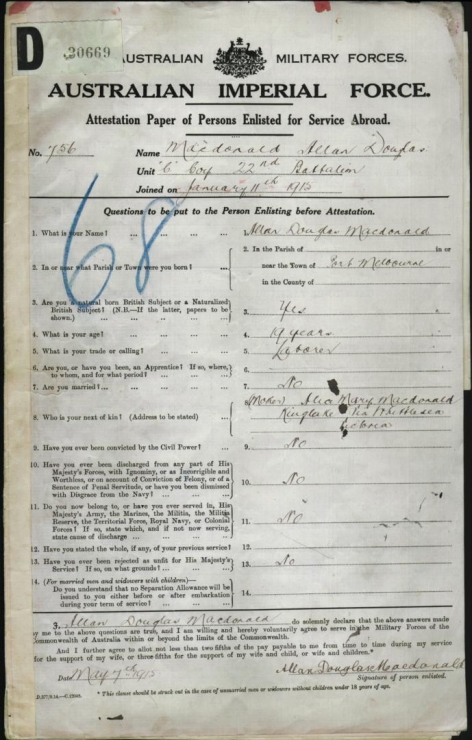 D
30669
AUSTRALIAN MILITARY FORCES.
AUSTRALIAN IMPERIAL FORCE.
Attestation Paper of Persons Enlisted for Service Abroad.
No. 756 Name Macdonald Allan Douglas
Unit "C" Coy 22nd Battalion
Joined on January 11th 1915
68
Questions to be put to the Person Enlisting before Attestation.
1. What is your Name? ... ... ... ... Allan Douglas Macdonald
2. In or near what Parish or Town were you born? ... 2. In the Parish of in or
near the Town of Port Melbourne
in the County of
3. Are you a natural born British Subject or a Naturalized
British Subject? (N.B.—If the latter, papers to be
shown.) ... ... ... ... 3. Yes
4. What is your age? ... ... ... ... 4. 19 years
5. What is your trade or calling? ... ... ... 5. Laborer
6. Are you, or have you been, an Apprentice? If so, where,
to whom, and for what period? ... ... ... 6.
7. Are you married? ... ... ... ... 7. No
8. Who is your next of kin? (Address to be stated) ... 8. Mother Alice Mary Macdonald
Kinglake Via Whittlesea
Victoria
9. Have you ever been convicted by the Civil Power? ... 9. No
10. Have you ever been discharged from any part of His
Majesty's Forces, with Ignominy, or as Incorrigible and
Worthless, or on account of Conviction of Felony, or of a
Sentence of Penal Servitude, or have you been dismissed
with Disgrace from the Navy? ... ... ... 10. No
11. Do you now belong to, or have you ever served in, His
Majesty's Army, the Marines, the Militia, the Militia
Reserve, the Territorial Force, Royal Navy, or Colonial
Forces? If so, state which, and if not now serving,
state cause of discharge ... ... ... 11. No
12. Have you stated the whole, if any, of your previous service? 12.
13. Have you ever been rejected as unfit for His Majesty's
Service? If so, on what grounds? ... ... 13. No
14. (For married men and widowers with children)—
Do you understand that no Separation Allowance will be
issued to you either before or after embarkation
during your term of service? ... ... 14.
I, Allan Douglas Macdonald do solemnly declare that the above answers made
by me to the above questions are true, and I am willing and hereby voluntarily agree to serve in the Military Forces of the
Commonwealth of Australia within or beyond the limits of the Commonwealth.
And I further agree to allot not less than two-fifths of the pay payable to me from time to time during my service
for the support of my wife, or three-fifths for the support of my wife and child, or wife and children.
Date May 7th 1915 Allan Douglas Macdonald
Signature of person enlisted.
* This clause should be struck out in the case of unmarried men or widowers without children under 18 years of age.